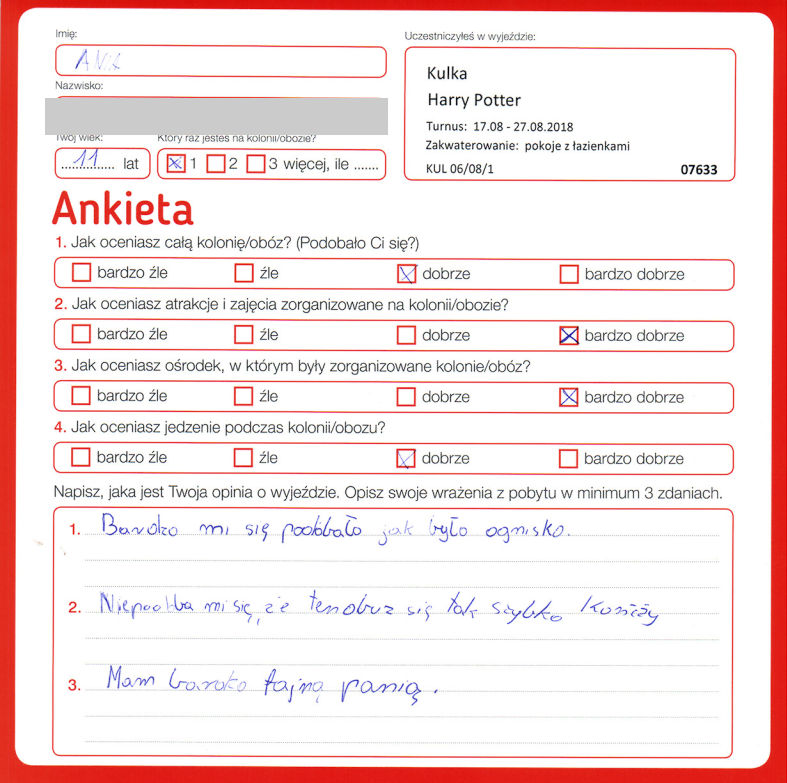 Imię:
Uczestniczyłeś w wyjeździe:
Ania
Kulka
Nazwisko:
Harry Potter
Turnus: 17.08 - 27.08.2018
Twój wiek:
Który raz jesteś na kolonii/obozie?
Zakwaterowanie: pokoje z łazienkami
11 lat
1 2 3 więcej, ile .......
KUL 06/08/1 07633
Ankieta
1. Jak oceniasz całą kolonię/obóz? (Podobało Ci się?)
bardzo źle źle dobrze bardzo dobrze
2. Jak oceniasz atrakcje i zajęcia zorganizowane na kolonii/obozie?
bardzo źle źle dobrze bardzo dobrze
3. Jak oceniasz ośrodek, w którym były zorganizowane kolonie/obóz?
bardzo źle źle dobrze bardzo dobrze
4. Jak oceniasz jedzenie podczas kolonii/obozu?
bardzo źle źle dobrze bardzo dobrze
Napisz, jaka jest Twoja opinia o wyjeździe. Opisz swoje wrażenia z pobytu w minimum 3 zdaniach.
1. Bardzo mi się podobało jak było ognisko.
2. mi się, że ten obuz się tak szybko
3. Mam bardzo fajną panią.